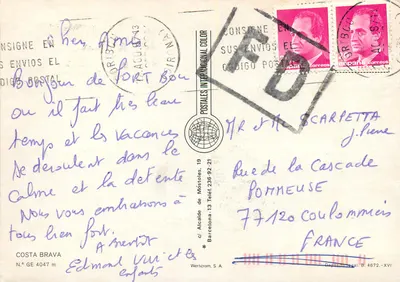 Chers Amis
Bonjour de PORT BOU
ou il fait très beau
temps et les vacances
se déroulent dans le
calme et la détente
Nous vous embrassons à
tous bien fort.
A bientôt
Edmond et les
enfants
COSTA BRAVA
N.º GE 4047 m
POSTALES INTERNACIONAL COLOR
c/ Alcalde de Móstoles, 19
Barcelona-13 Telef. 236-92-21
Wertstern, S.A.
CONSIGNE EN
SUS ENVIOS EL
CODIGO POSTAL
CONSIGNE EN
SUS ENVIOS EL
CODIGO POSTAL
PD
España correos
España correos
Mr et Me SCARPETTA
J. Pierre
Rue de la Cascade
POMMEUSE
77120 COULOMMIERS
FRANCE